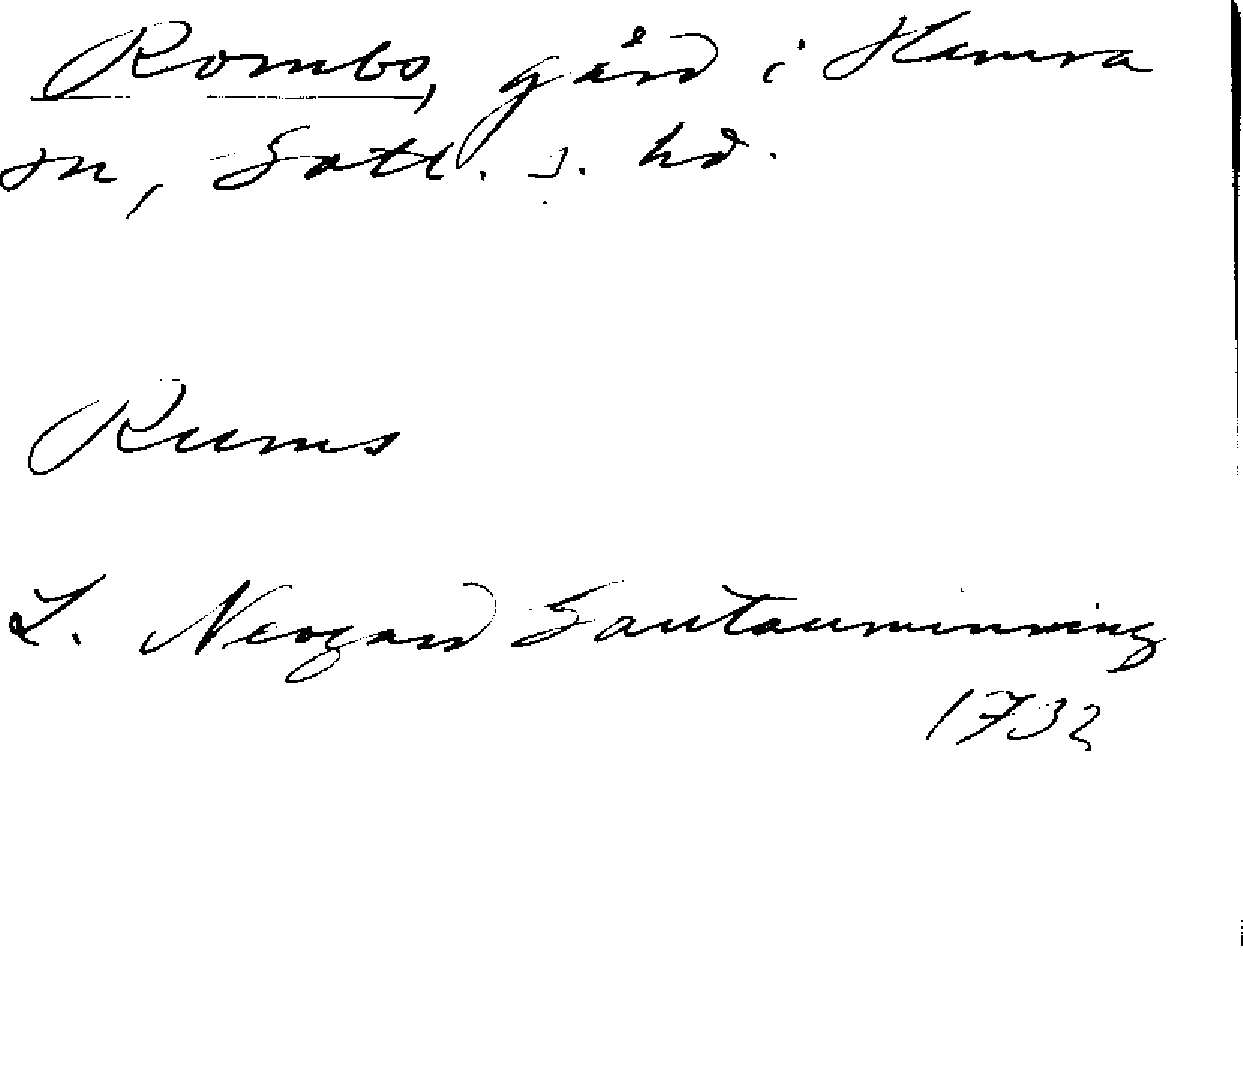 Rombo, gård i Hamra
sn, Gotl. s. hd.
Rums
L. Neogard Gautauminning
1732